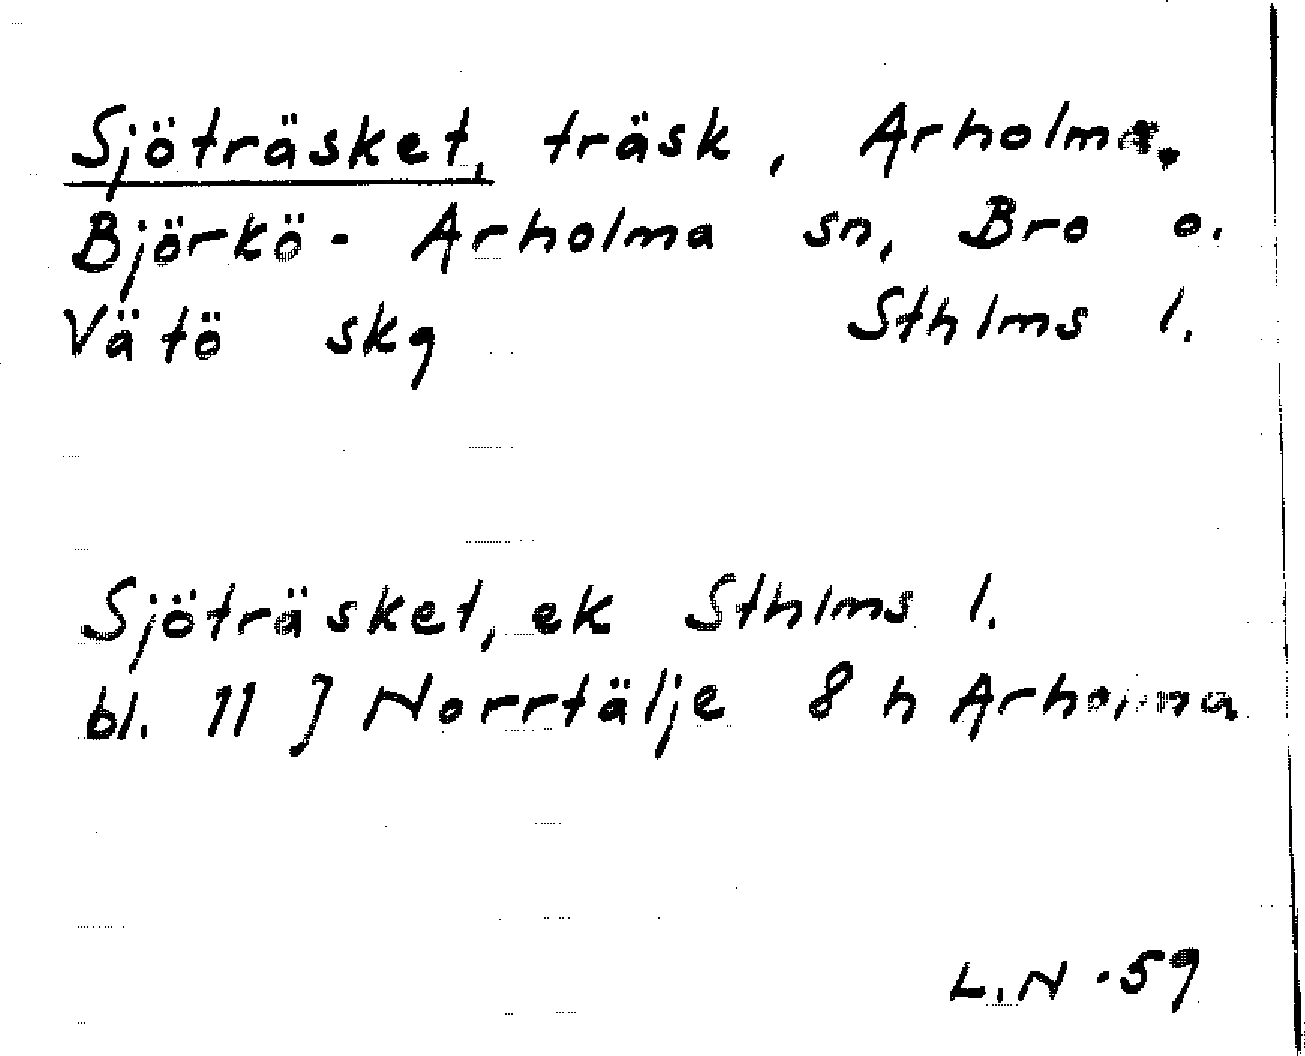 Sjöträsket, träsk, Arholma.
Björkö-Arholma sn, Bro o.
Vätö skg Sthlms l.
Sjöträsket, ek Sthlms l.
bl. 11 J Norrtälje 8 h Arholma
L.N -59